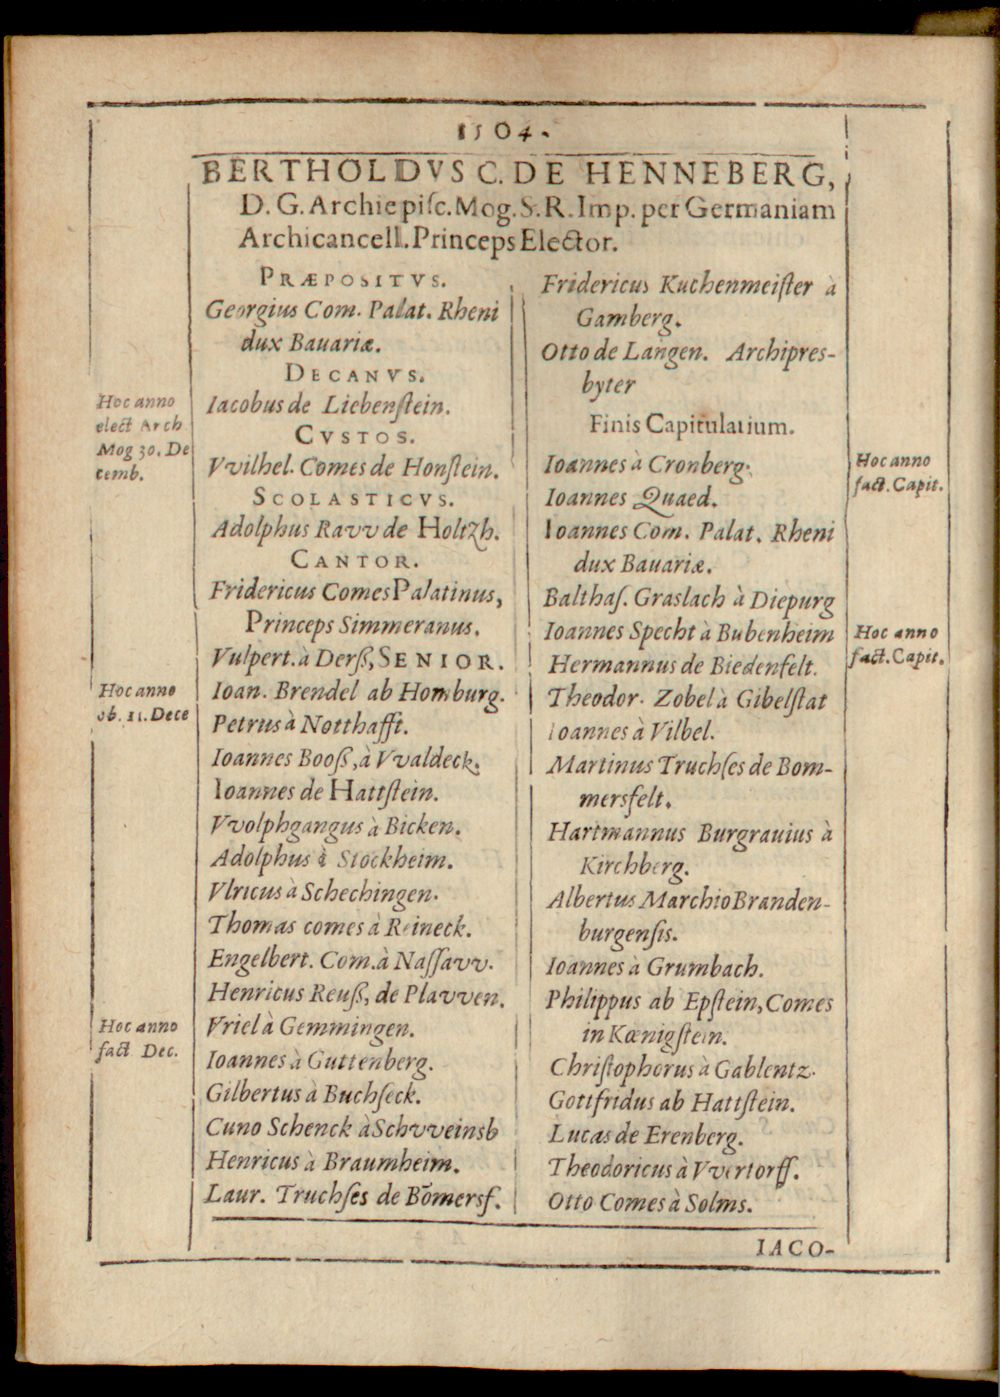 1504.
BERTHOLDVS C. DE HENNEBERG,
D. G. Archiepiſc. Mog. S. R. Imp. per Germaniam
Archicancell. Princeps Elector.
PRÆPOSITVS.
Georgius Com. Palat. Rheni
dux Bauariæ.
DECANVS.
Hoc anno
elect Arch
Mog 30. De
cemb.
Iacobus de Liebenſtein.
CVSTOS.
Vvilhel. Comes de Honſtein.
SCOLASTICVS.
Adolphus Ravv de Holtzh.
CANTOR.
Fridericus Comes Palatinus,
Princeps Simmeranus.
Vulpert. à Derß, SENIOR.
Hoc anno
ob. 11. Dece
Ioan. Brendel ab Homburg.
Petrus à Notthafft.
Ioannes Booß, à Vvaldeck.
Ioannes de Hattſtein.
Vvolphgangus à Bicken.
Adolphus à Stockheim.
Vlricus à Schechingen.
Thomas comes à Reineck.
Engelbert. Com. à Naſſavv.
Henricus Reuß, de Plavven.
Hoc anno
fact Dec.
Vriel à Gemmingen.
Ioannes à Guttenberg.
Gilbertus à Buchſeck.
Cuno Schenck à Schvveinsb
Henricus à Braumheim.
Laur. Truchſes de Bōmersf.
Fridericus Kuchenmeiſter à
Gamberg.
Otto de Langen. Archipres-
byter
Finis Capitularium.
Ioannes à Cronberg.
Hoc anno
fact. Capit.
Ioannes Quaed.
Ioannes Com. Palat. Rheni
dux Bauariæ.
Balthaſ. Graslach à Diepurg
Ioannes Specht à Bubenheim
Hoc anno
fact. Capit.
Hermannus de Biedenfelt.
Theodor. Zobel à Gibelſtat
Ioannes à Vilbel.
Martinus Truchſes de Bom-
mersfelt.
Hartmannus Burgrauius à
Kirchberg.
Albertus Marchio Branden-
burgenſis.
Ioannes à Grumbach.
Philippus ab Epſtein, Comes
in Kœnigſtein.
Chriſtophorus à Gablentz.
Gottfridus ab Hattſtein.
Lucas de Erenberg.
Theodoricus à Vvertorff.
Otto Comes à Solms.
IACO-